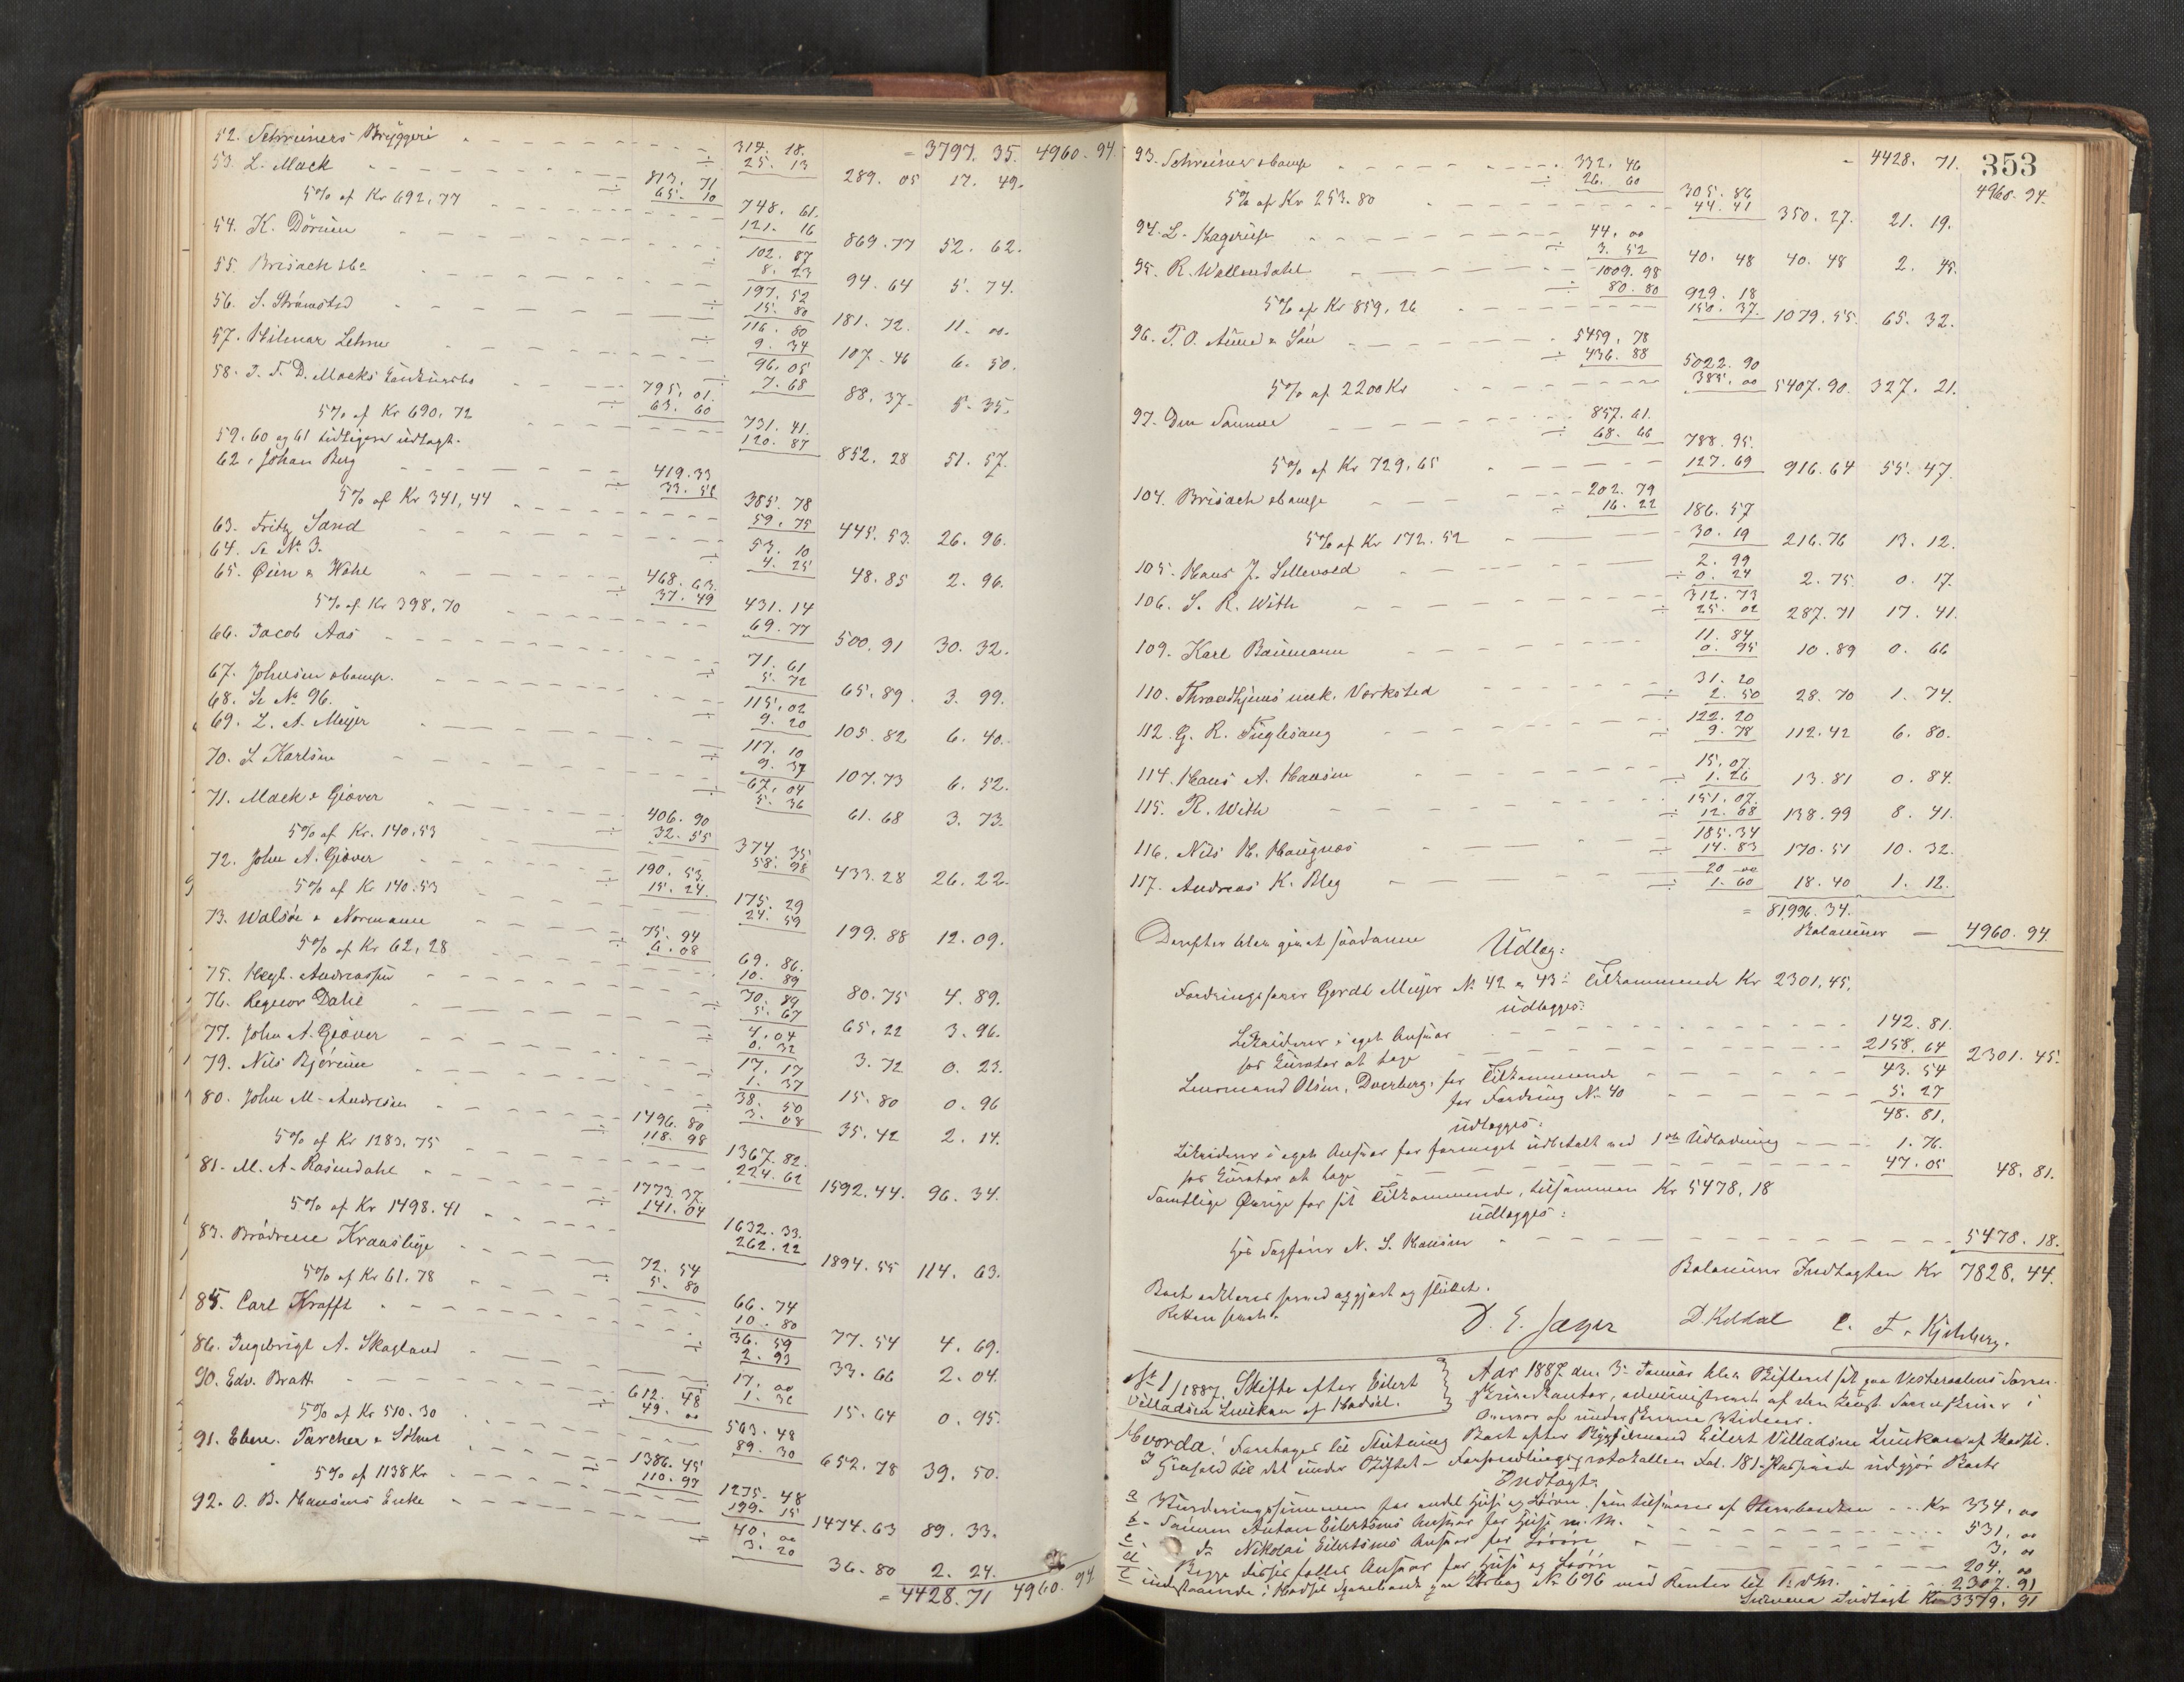 52. Schreiners Bryggeri 314. 18. = 3797. 35. 4960. 94.
÷ 25. 13 289. 05 17. 49.
53. L. Mack 813. 71
÷ 65. 10 748. 61.
5% af Kr 692,77 121. 16 869. 77 52. 62.
54. K. Dörum 102. 87
÷ 8. 23 94. 64 5. 74.
55. Brisach & Co 197. 52
÷ 15. 80 181. 72. 11. 00.
56. S. Strömsted 116. 80
÷ 9. 34 107. 46 6. 50.
57. Hilmar Lehne 96. 05
÷ 7. 68 88. 37 5. 35.
58. J. F. D. Macks 795. 01.
÷ 63. 60 731. 41.
5% af Kr 690,72 120. 87 852. 28 51. 57.
59. 60 og 61 tidligere udtagt.
62. Johan Berg 419. 33
÷ 33. 55 385. 78
5% af Kr 341,44 59. 75 445. 53. 26. 96.
63. Fritz Sand 53. 10
÷ 4. 25 48. 85 2. 96.
64. Se No 3.
65. Öien & Wahl 468. 63.
÷ 37. 49 431. 14
5% af Kr 398,70 69. 77 500. 91 30. 32.
66. Jacob Aas 71. 61
÷ 5. 72 65. 89. 3. 99.
67. Johnsen & Comp. 115. 02
÷ 9. 20 105. 82 6. 40.
68. Se No 96.
69. L. A. Meyer 117. 10
÷ 9. 37 107. 73 6. 52.
70. S. Karlsen 67. 04
÷ 5. 36 61. 68 3. 73.
71. Mack & Giæver 406. 90
÷ 32. 55 374. 35
5% af Kr. 140.53 58. 98 433. 28 26. 22.
72. John A. Giæver 190. 53.
÷ 15. 24. 175. 29
5% af Kr 140.53 24. 59 199. 88 12. 09.
73. Walsöe & Normann 75. 94
÷ 6. 08 69. 86.
5% af Kr 62,28 10. 89 80. 75 4. 89.
75. Hegl. Andreassen 70. 89
÷ 5. 67 65. 22 3. 96.
76. Regnor Dahl 4. 04
÷ 0. 32 3. 72 0. 23.
77. John A. Giæver 17. 17
÷ 1. 37 15. 80 0. 96
79. Nils Bjørum 38. 50
÷ 3. 08 35. 42 2. 14.
80. John M. Andresen 1496. 80
÷ 118. 98 1367. 82.
5% af Kr 1283.75 224. 62 1592. 44. 96. 34.
81. M. A. Rosendahl 1773. 37.
÷ 141. 04 1632. 33.
5% af Kr 1498.41 262. 22 1894. 55 114. 63.
83. Brödrene 72. 54
÷ 5. 80 66. 74
5% af Kr 61.78 10. 80 77. 54 4. 69.
85. Carl Krafft 36. 59
÷ 2. 93 33. 66 2. 04.
86. Ingebrigt A. Skagland 17. 00
÷ 1. 36 15. 64 0. 95.
90. Edv. Bratt 612. 48
÷ 49. 00 563. 48
5% af Kr 510.30 89. 30 652. 78 39. 50.
91. Eben. Parcher & Söhne 1386. 45
÷ 110. 97 1275. 48
5% af 1138 Kr 199. 15 1474. 63 89. 33.
92. O. B. Hansens Enke 40. 00
÷ 3. 20 36. 80 2. 24.
= 4428. 71 4960. 94
353
93. Schreiner & Comp 332. 46 = 4428. 71.
÷ 26. 60 305. 86 4960. 94.
5% af Kr 253.80 44. 41 350. 27. 21. 19.
94. L. Hagerup 44. 00
÷ 3. 52 40. 48 40. 48 2. 45.
95. R. Wollendahl 1009. 98
÷ 80. 80 929. 18
5% af Kr 859,26 150. 37. 1079. 55. 65. 32.
96. T. O. Aune & Sön 5459. 78
÷ 436. 88 5022. 90
5% af 2200 Kr 385. 00 5407. 90. 327. 21.
97. Den Samme 857. 61.
÷ 68. 66 788. 95.
5% af Kr 729,65 127. 69 916. 64 55. 47.
104. Brisach & Comp 202. 79
÷ 16. 22 186. 57
5% af Kr 172.52 30. 19 216. 76 13. 12.
105. Hans J. Lillevold 2. 99
÷ 0. 24 2. 75 0. 17.
106. S. R. With 312. 73
÷ 25. 02 287. 71 17. 41.
109. Karl Baumann 11. 84
0. 95 10. 89 0. 66
110. Throndhjems mek. Værksted 31. 20
÷ 2. 50 28. 70 1. 74.
112. G. R. Fuglesang 122. 20
÷ 9. 78 112. 42 6. 80.
114. Hans A. Hansen 15. 07.
÷ 1. 26 13. 81 0. 84.
115. R. With 151. 07.
÷ 12. 68 138. 99 8. 41.
116. Nils H. Haugnæs 185. 34
÷ 14. 83 170. 51 10. 32.
117. Andreas K. Bleg 20 00
÷ 1. 60 18. 40 1. 12.
= 81996. 34.
Balancerer — 4960. 94
Derefter blev gjort saadanne Udlæg:
Fordringshaver Gerdt Meyer No 42 & 43: Tilkommende Kr 2301,45.
udlægges:
Likviderer i eget Ansvar 142. 81.
hos Curator at tage 2158. 64 2301. 45.
Lensmand Olsen, Dverberg, for Tilkommende 43. 54
for Fordring No 40 5. 27
48. 81.
udlægges:
Likviderer i eget Ansvar for formeget udbetalt ved 1ste Udlodning 1. 76.
hos Curator at tage 47. 05 48. 81.
Samtlige Øvrige for sit Tilkommende, tilsammen Kr 5478,18
udlægges:
hos Sagfører N. S. Hansen 5478. 18.
Balancerer Indtægten Kr 7828. 44.
Boet erklæres hermed opgjort og sluttet.
Retten hævet.
D. E. Jæger D Koldal C. F. Kjelsberg.
No 1/1887. Skifte efter Eilert
Villadsen Lunkan af Hadsel.
Aar 1887 den 3. Januar blev Skifteret sat paa Vesteraalens Soren-
skriverkontor, administreret af den konst. Sorenskriver i
Overvær af underskrevne Vidner.
Hvorda: Foretages til Slutning Boet efter Pigsfiermand Eilert Villadsen Lunkan af Hadsel.
I Henhold til det under Skiftet – Forhandlingsprotokollen Fol. 181 – Passerede udgjør Boets
Indtægt.
a Vurderingssummen for andet Husi og Løsøre, som tilhører af Sterboenken Kr 334. 00
b. Sønnen Anton Eilertsens Ansvar for Husi m. M. 531. 00
c. do Nikolai Eilertsens Ansvar for Løsøre 3. 00
d Begge disses fælles Ansvar for Husi og Løsøre 204. 00
e indestaaende i Hadsel Sparebank paa Vorbog No 696 med Renter til D. M. 2307. 91
Summa Indtægt Kr 3379. 91